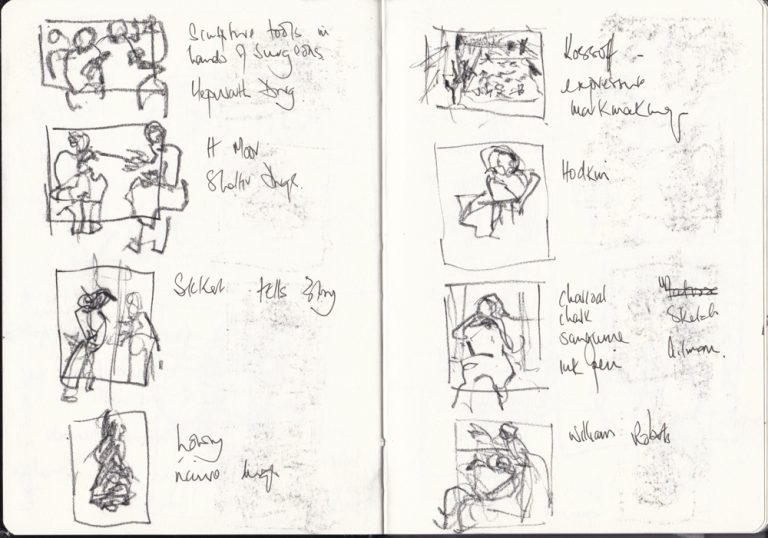 Sculpture tools in
hands of surgeons
Hepworth
H Moor
Shelter
Sickert tells story
Lowry
Kossoff -
expressive
markmaking
Hodkin
charcoal
chalk
sanguine
ink pen
Sketch
Gilman.
William Roberts